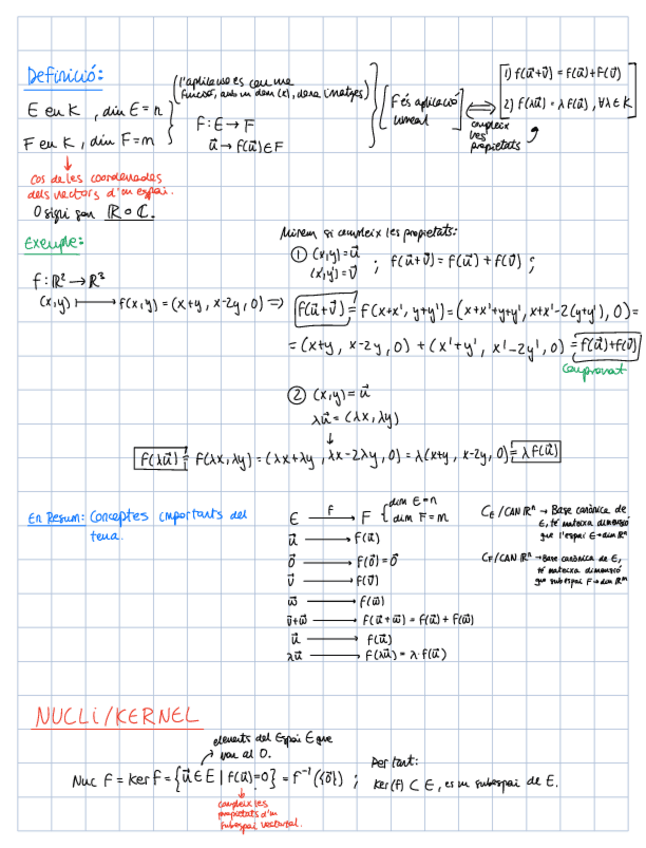 Definició:
E en K, dim E = n
F en K, dim F = m
l'aplicació es com una
funció, amb un dom(x), dona imatges)
f: E → F
u⃗ → f(u⃗) ∈ F
F és aplicació
lineal
⟺
compleix
les
propietats
1) f(u⃗+v⃗) = f(u⃗)+f(v⃗)
2) f(λu⃗) = λf(u⃗), ∀λ ∈ K
Cos de les coordenades
dels vectors d'un espai.
O sigui son ℝ o ℂ.
Exemple:
f: ℝ² → ℝ³
(x,y) ⟼ f(x,y) = (x+y, x-2y, 0) ⟹
Mirem si compleix les propietats:
① (x,y) = u⃗
(x',y') = v⃗ ; f(u⃗+v⃗) = f(u⃗) + f(v⃗) ;
f(u⃗+v⃗) = f(x+x', y+y') = (x+x'+y+y', x+x'-2(y+y'), 0) =
= (x+y, x-2y, 0) + (x'+y', x'-2y', 0) = f(u⃗)+f(v⃗)
Comprovat
② (x,y) = u⃗
λu⃗ = (λx, λy)
↓
f(λu⃗) = f(λx, λy) = (λx+λy, λx-2λy, 0) = λ(x+y, x-2y, 0) = λf(u⃗)
En Resum: Conceptes importants del
tema.
E —f→ F { dim E = n
dim F = m
u⃗ → f(u⃗)
0⃗ → f(0⃗) = 0⃗
v⃗ → f(v⃗)
w⃗ → f(w⃗)
v⃗+w⃗ → f(u⃗+w⃗) = f(u⃗) + f(w⃗)
u⃗ → f(u⃗)
λu⃗ → f(λu⃗) = λ·f(u⃗)
C_E/CAN ℝⁿ → Base canònica de
E, té mateixa dimensió
que l'espai E → dim ℝⁿ
C_F/CAN ℝᵐ → Base canònica de E,
té mateixa dimensió
que subespai F → dim ℝᵐ
NUCLI/KERNEL
elements del Espai E que
van al 0.
Nuc F = Ker f = {u⃗ ∈ E | f(u⃗) = 0} = f⁻¹({0⃗}) ;
compleix les
propietats d'un
subespai vectorial.
Per tant:
Ker(f) ⊂ E, es un subespai de E.